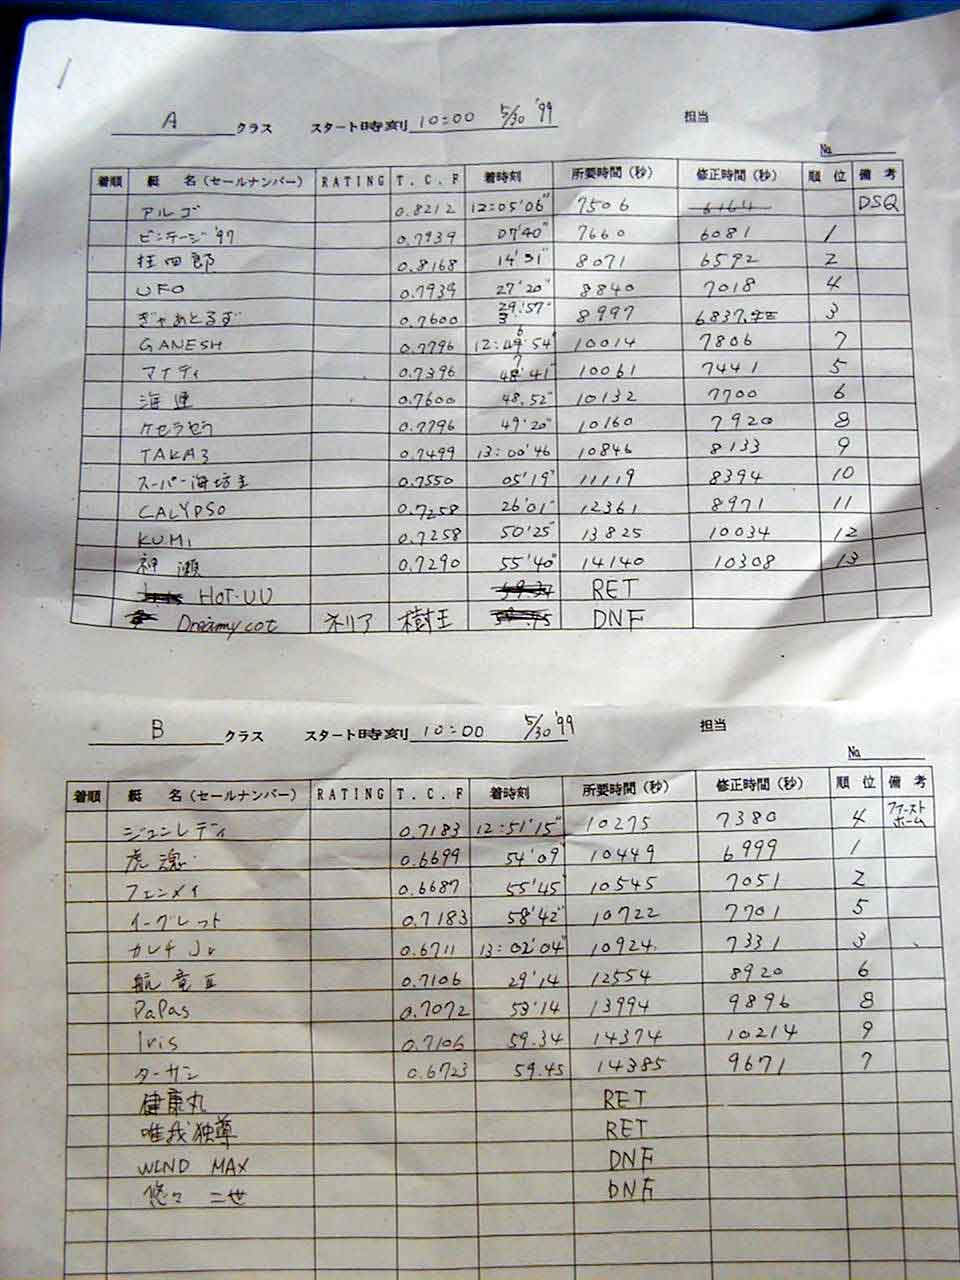 A クラス スタート時刻 10:00 5/30 '99 担当
No.
着順 艇 名(セールナンバー) RATING T.C.F 着時刻 所要時間(秒) 修正時間(秒) 順 位 備 考
アルゴ 0.8212 12:05'06" 7506 6164 DSQ
ビンテージ'97 0.7939 07'40" 7660 6081 1
狂四郎 0.8168 14'31" 8071 6592 2
UFO 0.7939 27'20" 8840 7018 4
ぎゃあとるず 0.7600 29'57" 8997 6837 3
GANESH 0.7796 10014 7806 7
マイティ 0.7396 10061 7441 5
海 連 0.7600 48.52" 10132 7700 6
ケセラセラ 0.7796 49'20" 10160 7920 8
TAKA3 0.7499 13:00'46 10846 8133 9
スーパー海坊主 0.7550 05'19" 11119 8394 10
CALYPSO 0.7258 26'01" 12361 8971 11
KUMI 0.7258 50'25" 13825 10034 12
神 瀬 0.7290 55'40" 14140 10308 13
HOT-UU RET
Dreamy cot ネリア 樹王 DNF
B クラス スタート時刻 10:00 5/30 '99 担当
No.
着順 艇 名(セールナンバー) RATING T.C.F 着時刻 所要時間(秒) 修正時間(秒) 順 位 備 考
ジュンレディ 0.7183 12:51'15" 10275 7380 4 ファースト ホーム
虎 魂 0.6699 54'09" 10449 6999 1
フェンメイ 0.6687 55'45" 10545 7051 2
イーグレット 0.7183 58'42" 10722 7701 5
カレチ Jr 0.6711 13:02'04" 10924 7331 3
航 竜 II 0.7106 29'14 12554 8920 6
PaPas 0.7072 53'14 13994 9896 8
Iris 0.7106 59.34 14374 10214 9
ターサン 0.6723 59.45 14385 9671 7
健康丸 RET
唯我独尊 RET
WIND MAX DNF
悠々 二世 DNF